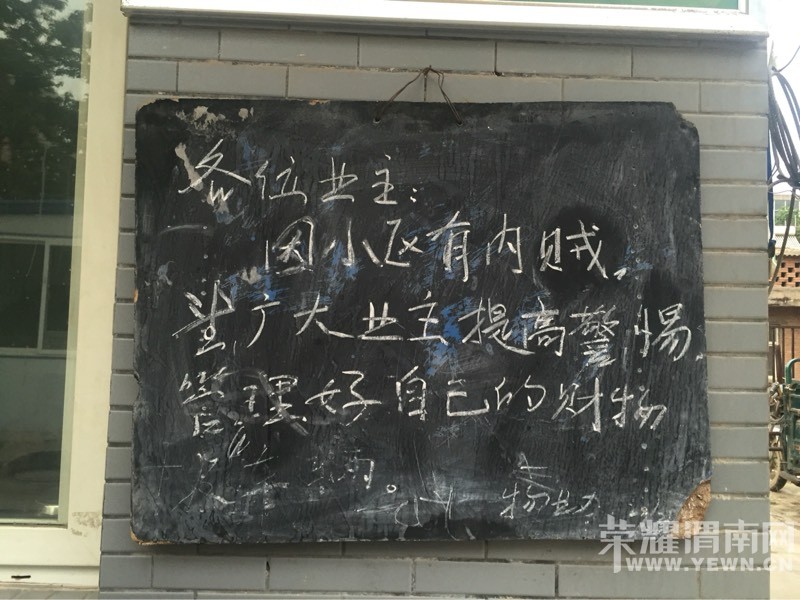 各位业主：
因小区有内贼，
望广大业主提高警惕
管理好自己的财物
及车辆。
物业
荣耀渭南网
WWW.YEWN.CN